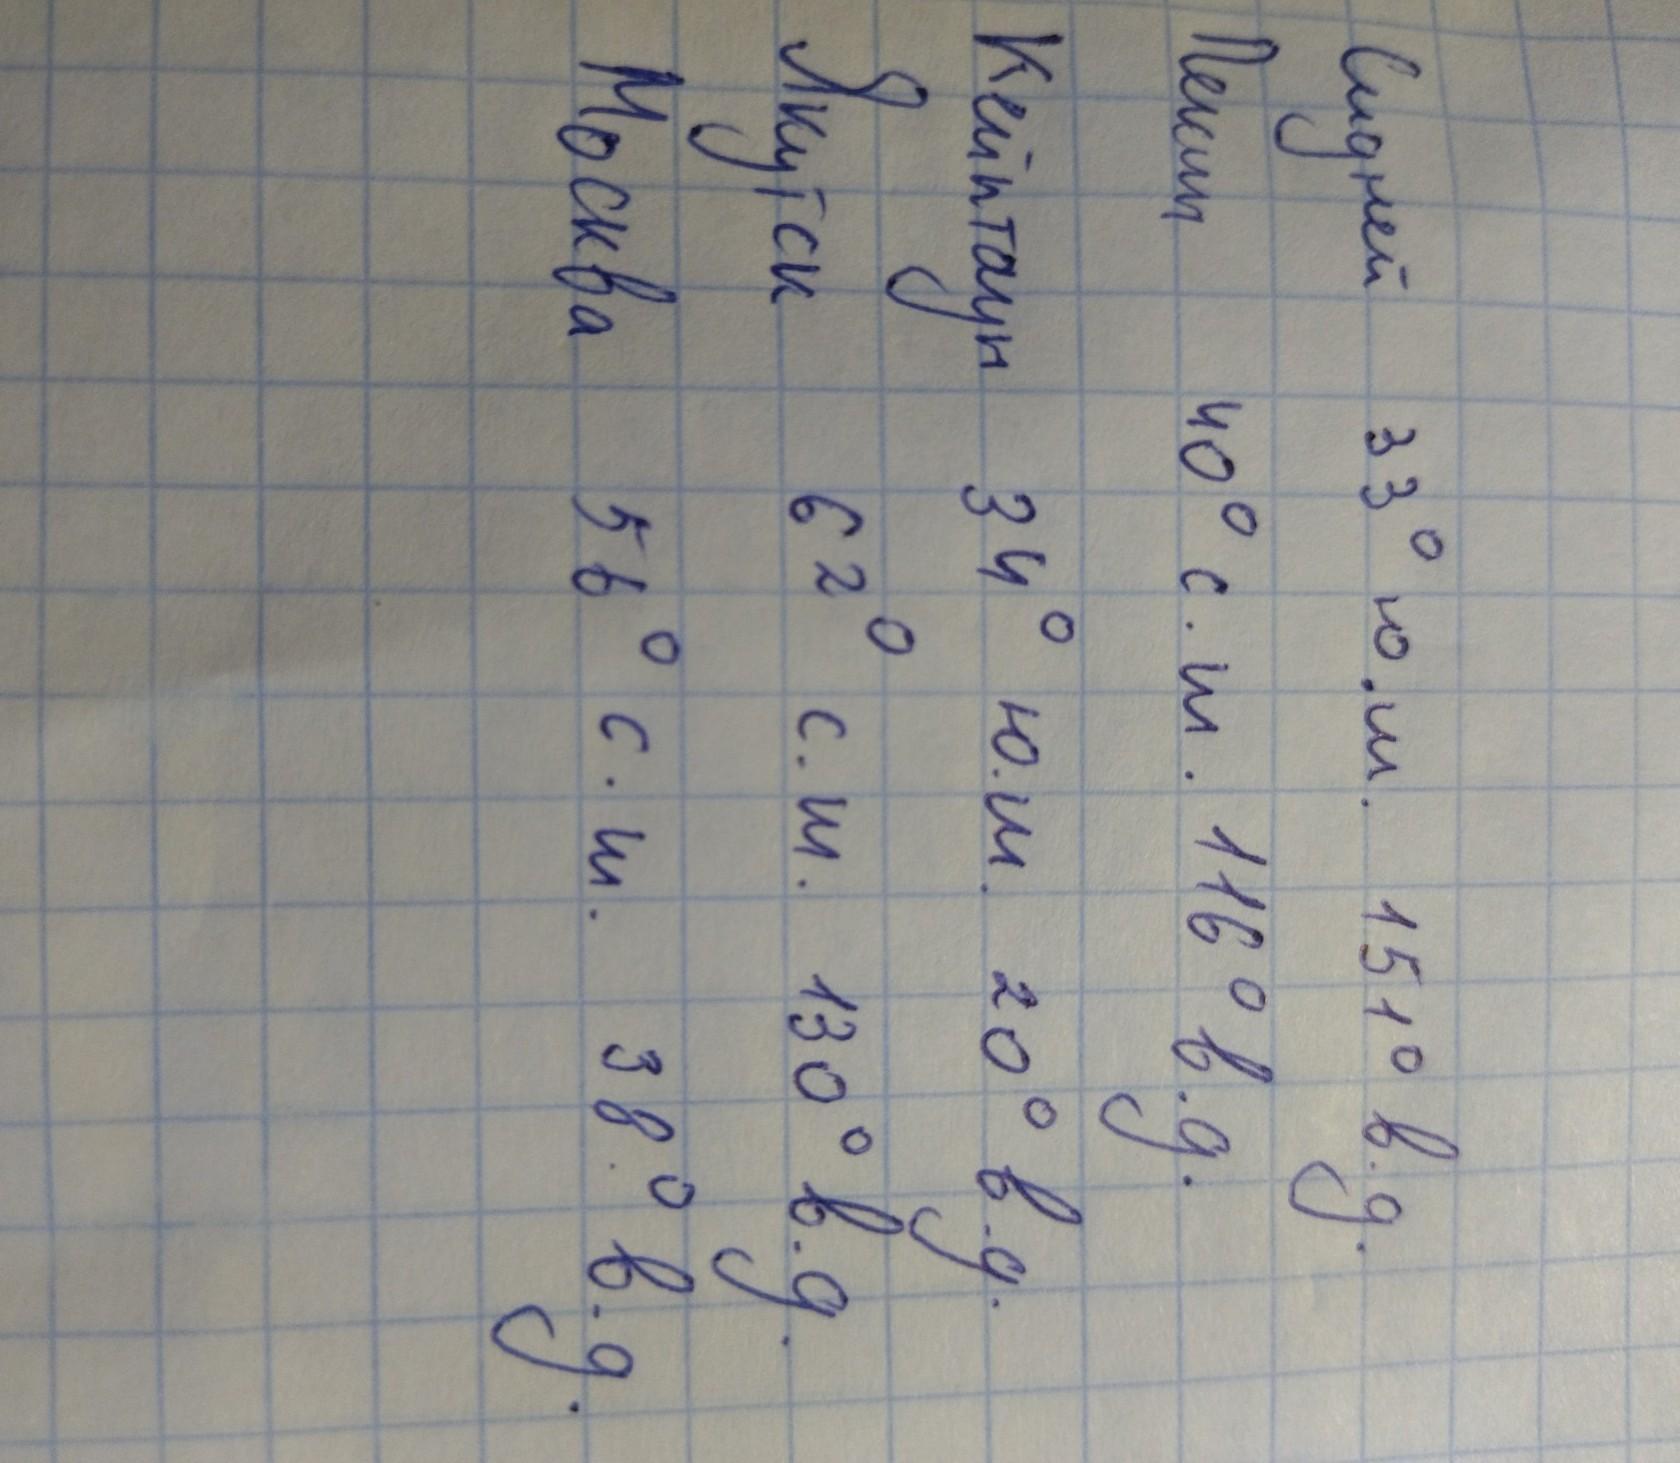 Сидней 33° ю.ш. 151° в.д.
Пекин 40° с.ш. 116° в.д.
Кейптаун 34° ю.ш. 20° в.д.
Якутск 62° с.ш. 130° в.д.
Москва 56° с.ш. 38° в.д.